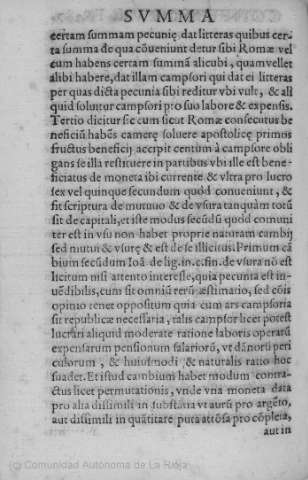 SVMMA
certam summam pecuniȩ dat litteras quibus cer-
ta summa de qua cōueniunt detur sibi Romæ vel
cum habens pecuniam summā alicubi, quam vellet
alibi habere, dat illam campsori qui dat ei litteras
per quas dicta pecunia sibi reditur vbi vult, & ali
quid soluitur campsori pro suo labore & expensis.
Tertio dicitur sic cum sicut Romæ consecutus be
neficiū habēs camerȩ soluere apostolicȩ primos
fructus beneficij accipit centum à campsore obli
gans se illa restituere in partibus vbi ille est bene-
ficiatus de moneta ibi currente & vltra pro lucro
sex vel quinque secundum quòd conueniunt, &
fit scriptura de mutuo & de vsura tanquàm totū
sit de capitali, et iste modus secūdū quod comuni
ter est in vsu non habet proprie naturam cambij
sed mutui & vsurȩ & est de se illicitus. Primum cā
bium secūdum Ioā de lig. in. c. fin. de vsura nō est
licitum nisi attento interesse, quia pecunia est in-
uēdibilis, cum sit omniū rerū æstimatio, sed cōis
opinio tenet oppositum quia cum ars campsoria
sit reipublicæ necessaria, talis campsor licet potest
lucrari aliquid moderate ratione laboris operarū
expensarum pensionum salariorū, vt dānorū peri
culorum, & huiusmodi & naturalis ratio hoc
suadet. Et istud cambium habet modum contra-
ctus licet permutationis, vnde vna moneta datur
pro alia dissimili in substātia vt aurū pro argēto,
aut dissimili in quātitate puta attōsa pro cōpleta,
aut in
(c) Comunidad Autónoma de La Rioja